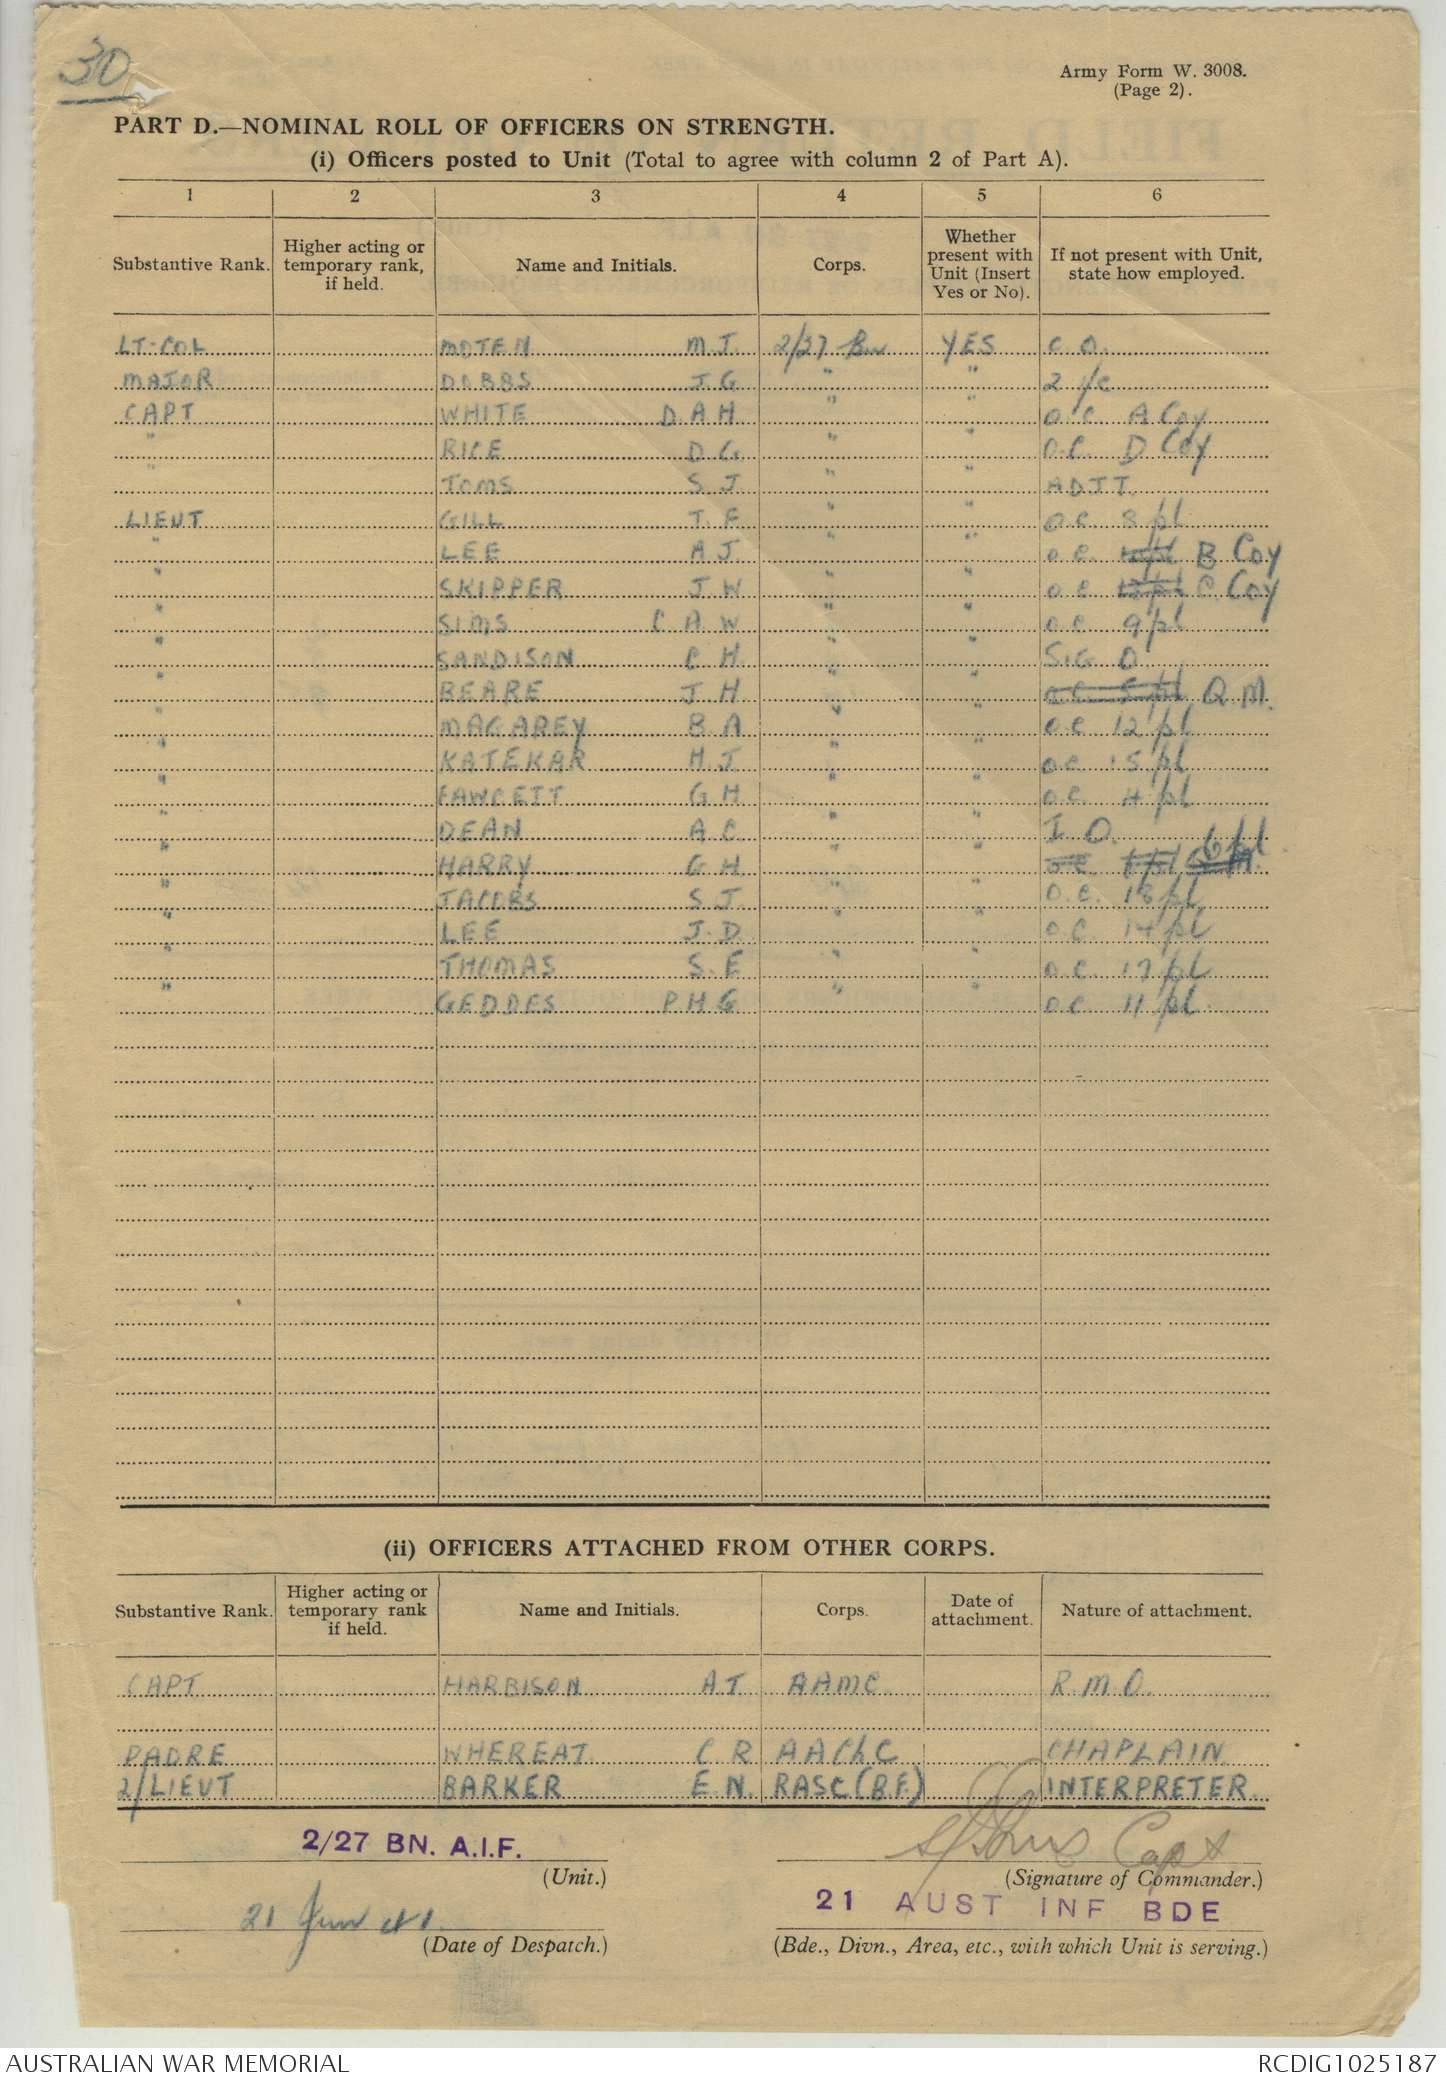 30
Army Form W. 3008.
(Page 2).
PART D.—NOMINAL ROLL OF OFFICERS ON STRENGTH.
(i) Officers posted to Unit (Total to agree with column 2 of Part A).
1 2 3 4 5 6
Substantive Rank. Higher acting or temporary rank, if held. Name and Initials. Corps. Whether present with Unit (Insert Yes or No). If not present with Unit, state how employed.
LT-COL MOTEN M.J. 2/27 Bn YES C.O.
MAJOR DOBBS J.G " " 2 i/c
CAPT WHITE D.A.H " " O.C. A Coy
" RICE D G " " O.C. D Coy
" TOMS S J " " ADJT.
LIEUT GILL T. F " " O.C. 8 pl
" LEE A J. " " O.C. B Coy
" SKIPPER J. W " " O.C. C. Coy
" SIMS C A W " " O.C. 9 pl
" SANDISON C H. " " SIG O
" BEARE J H. " " Q M.
" MAGAREY B. A " " O.C. 12 pl
" KATEKAR H J " " O.C. 15 pl
" FAWCETT G H " " O.C. 4 pl
" DEAN A C. " " I O.
" HARRY G H " " 6 pl
" JACOBS S J. " " O.C. 18 pl
" LEE J. D " " O.C. 14 pl
" THOMAS S. E " " O.C. 17 pl
" GEDDES P H G " " O.C. 11 pl.
(ii) OFFICERS ATTACHED FROM OTHER CORPS.
Substantive Rank. Higher acting or temporary rank if held. Name and Initials. Corps. Date of attachment. Nature of attachment.
CAPT HARBISON A T AAMC R.M.O.
PADRE WHEREAT C R AAChC CHAPLAIN
2/LIEUT BARKER E.N. RASC(B.F.) INTERPRETER
2/27 BN. A.I.F. SJToms Capt
(Unit.) (Signature of Commander.)
21 Jun 41. 21 AUST INF BDE
(Date of Despatch.) (Bde., Divn., Area, etc., with which Unit is serving.)
AUSTRALIAN WAR MEMORIAL RCDIG1025187